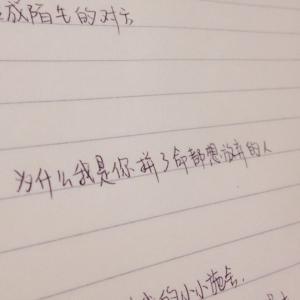 成陌生的对六
为什么我是你拼了命都想放弃的人
的小小施舍.